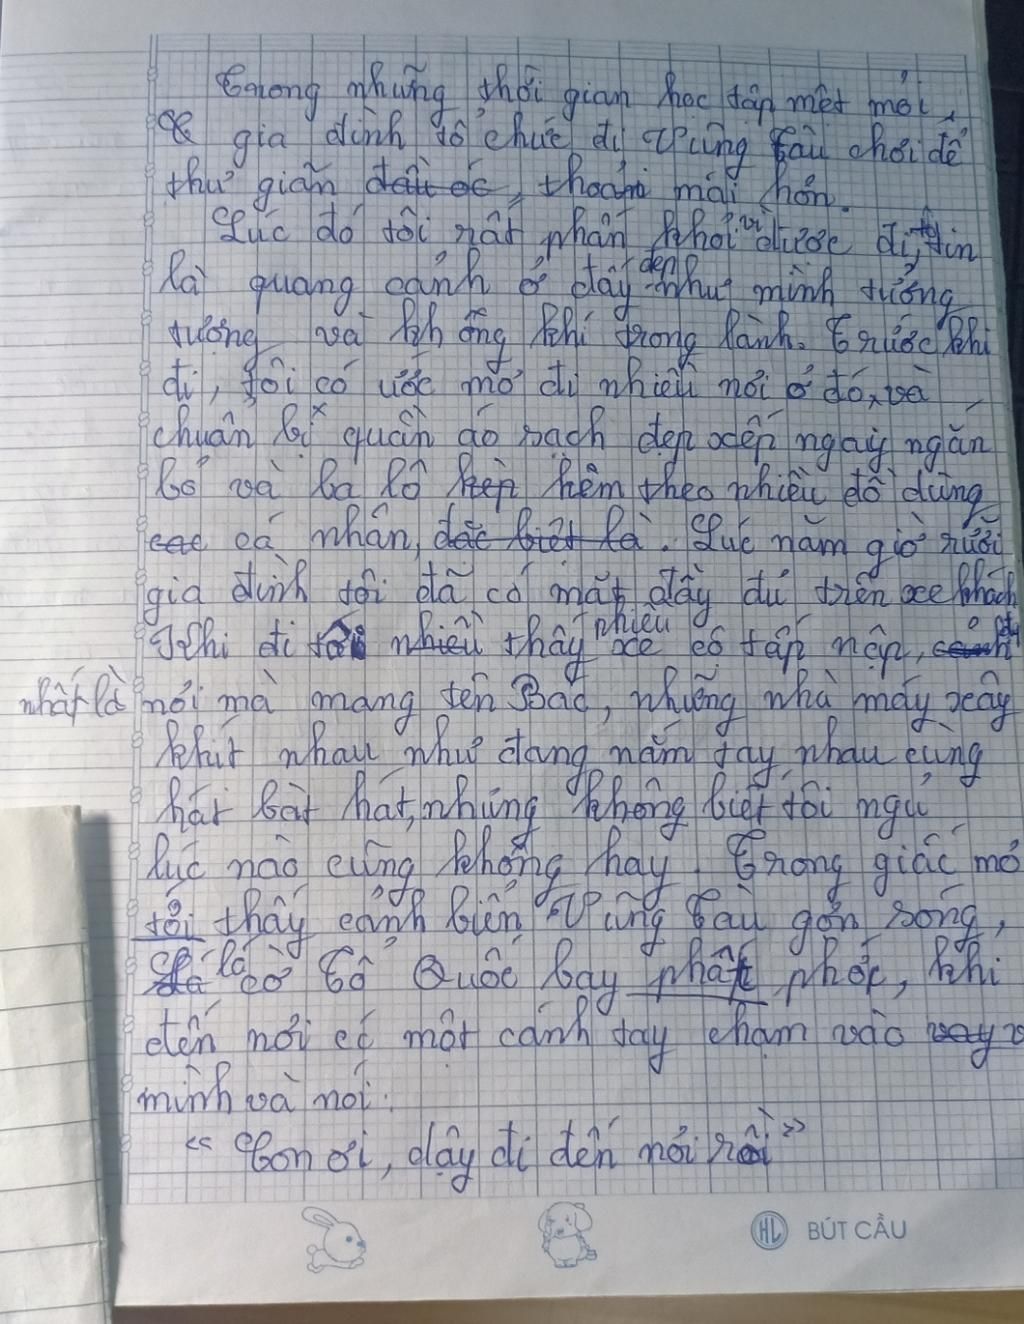 Trong những thời gian học tập mệt mỏi,
gia đình tổ chức đi Vũng Tàu chơi để
thư giãn đầu óc, thoải mái hơn.
Lúc đó tôi rất phấn khởi vì được đi, tôi tin
là quang cảnh ở đây đẹp như mình tưởng
tượng và không khí trong lành. Trước khi
đi, tôi có ước mơ đi nhiều nơi ở đó, và
chuẩn bị quần áo sạch đẹp xếp ngay ngắn
bỏ và ba lô kèm theo nhiều đồ dùng
cá nhân, đặc biệt là. Lúc năm giờ rưỡi
gia đình tôi đã có mặt đầy đủ trên xe khách
Khi đi tôi nhiều thấy nhiều xe cộ tấp nập,
nhất là nơi mà mang tên Bắc, những nhà máy xây
khít nhau như đang nắm tay nhau cùng
hát bài hát, nhưng không biết tôi ngủ
lúc nào cũng không hay. Trong giấc mơ
tôi thấy cảnh biển Vũng Tàu gợn sóng,
lá cờ Tổ Quốc bay phất phới, khi
đến nơi có một cánh tay chạm vào vay
mình và nói:
"Con ơi, dậy đi đến nơi rồi"
HL BÚT CẦU